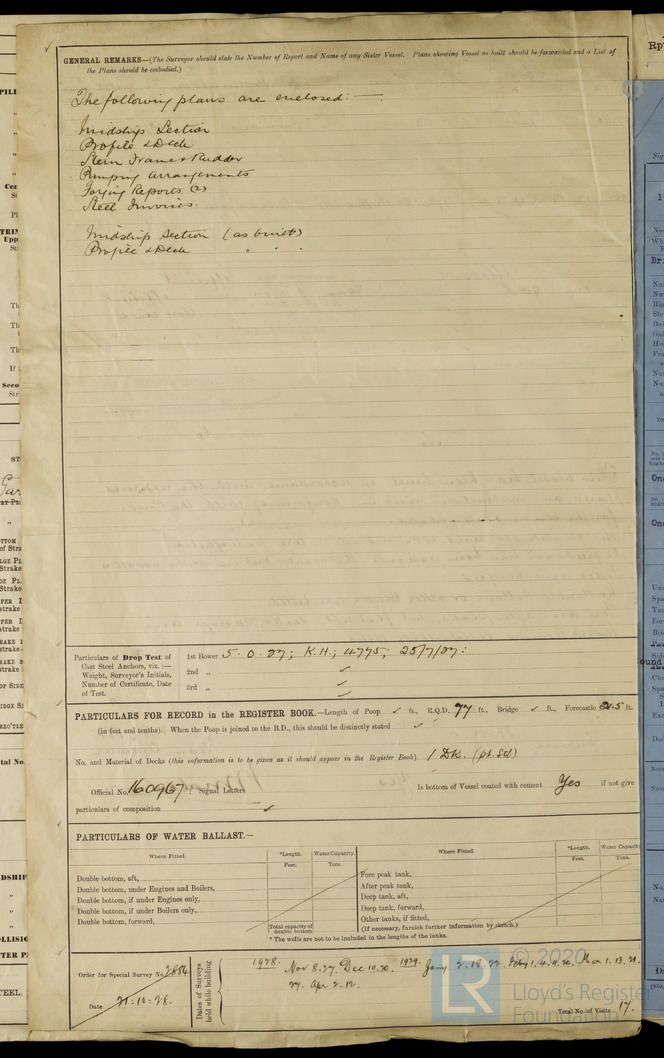 GENERAL REMARKS—(The Surveyor should state the Number of Report and Name of any Sister Vessel. Plans showing Vessel as built should be forwarded and a List of
the Plans should be embodied.)
The following plans are enclosed:—
Midship Section
Profile & Deck
Stern Frame & Rudder
Pumping Arrangements
Forging Reports (2)
Steel Invoices.
Midship Section (as built)
Profile & Deck " " "
Particulars of Drop Test of
Cast Steel Anchors, viz.:—
Weight, Surveyor's Initials,
Number of Certificate, Date
of Test.
1st Bower 5.0.27; K.H.; 4795; 25/7/27:
2nd „ ✓
3rd „ ✓
PARTICULARS FOR RECORD in the REGISTER BOOK.—Length of Poop ✓ ft., R.Q.D. 77 ft., Bridge ✓ ft., Forecastle 21.5 ft.
(in feet and tenths). When the Poop is joined to the B.D., this should be distinctly stated ✓
No. and Material of Decks (this information is to be given as it should appear in the Register Book) 1 Dk. (pt. Stl)
Official No. 160967 Signal Letters Is bottom of Vessel coated with cement Yes if not give
particulars of composition ✓
PARTICULARS OF WATER BALLAST.—
Where Fitted. *Length. Water Capacity. Where Fitted. *Length. Water Capacity
Feet. Tons. Feet. Tons.
Double bottom, aft, Fore peak tank,
Double bottom, under Engines and Boilers, After peak tank,
Double bottom, if under Engines only, Deep tank, aft,
Double bottom, if under Boilers only, Deep tank, forward,
Double bottom, forward, Other tanks, if fitted,
Total capacity of double bottom (If necessary, furnish further information by sketch.)
* The wells are not to be included in the lengths of the tanks.
Order for Special Survey No. 2884
Date 21.10.28.
Dates of Surveys
held while building
1928. Nov 8.27. Dec 10.20. 1929. Jany 2.18.22. Feby 1.4.11.20. Mar 1.13.21.
27. Apr 2.12.
Total No. of Visits 17.
© 2020
LR
Lloyd's Register
Foundation